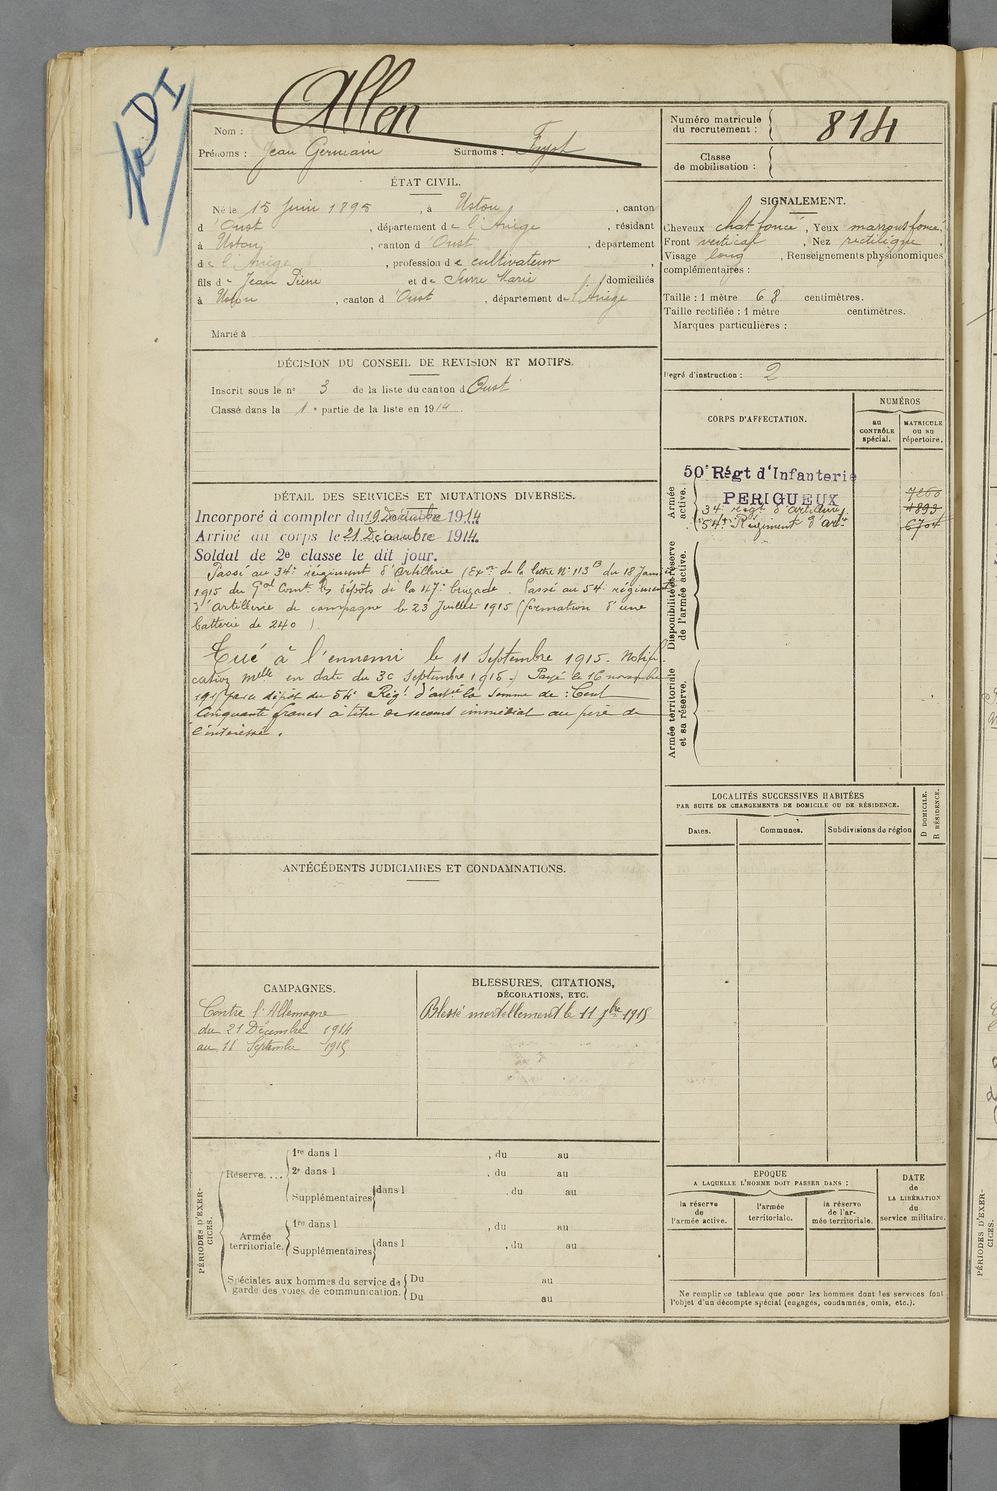 Allen
Nom :
Prénoms : Jean Germain Surnoms :
ÉTAT CIVIL.
Né le 15 Juin 1895, à Ustou, canton
d'Oust, département de l'Ariège, résidant
à Ustou, canton d'Oust, département
de l'Ariège, profession de cultivateur,
fils de Jean Pierre et de Marie domiciliés
à Ustou, canton d'Oust, département de l'Ariège
Marié à
DÉCISION DU CONSEIL DE REVISION ET MOTIFS.
Inscrit sous le n° 3 de la liste du canton d'Oust
Classé dans la 1e partie de la liste en 1914.
DÉTAIL DES SERVICES ET MUTATIONS DIVERSES.
Incorporé à compter du 19 Décembre 1914
Arrivé au corps le 21 Décembre 1914.
Soldat de 2e classe le dit jour.
Passé au 34e régiment d'Artillerie (Exon de la lettre N° 113 du 18 Janv
1915 du Gal Comt les dépôts de la 47e brigade. Passé au 54e régiment
d'Artillerie de campagne le 23 Juillet 1915 (formation d'une
batterie de 240).
Tué à l'ennemi le 11 Septembre 1915. Notifi-
cation Melle en date du 30 Septembre 1915. Payé le 16 novembre
1915 par le dépôt du 54e Régt d'artie la somme de : Cent
Cinquante francs à titre de secours immédiat au père de
l'intéressé.
ANTÉCÉDENTS JUDICIAIRES ET CONDAMNATIONS.
CAMPAGNES.
Contre l'Allemagne
du 21 Décembre 1914
au 11 Septembre 1915
BLESSURES, CITATIONS,
DÉCORATIONS, ETC.
Blessé mortellement le 11 7bre 1915
PÉRIODES D'EXER-
CICES.
Réserve....
1re dans l , du au
2e dans l , du au
Supplémentaires dans l , du au
Armée
territoriale.
1re dans l , du au
Supplémentaires dans l , du au
Spéciales aux hommes du service de
garde des voies de communication.
Du au
Du au
Numéro matricule
du recrutement : 814
Classe
de mobilisation :
SIGNALEMENT.
Cheveux chat foncé, Yeux marrons foncé,
Front vertical, Nez rectiligne,
Visage long, Renseignements physionomiques
complémentaires :
Taille : 1 mètre 68 centimètres.
Taille rectifiée : 1 mètre centimètres.
Marques particulières :
Degré d'instruction : 2
CORPS D'AFFECTATION.
NUMÉROS
au
CONTRÔLE
spécial.
MATRICULE
ou au
répertoire.
Armée
active.
50e Régt d'Infanterie
PERIGUEUX
34e régt d'artillerie 4893
54e Régiment d'Artie 6704
Disponibilité et réserve
de l'armée active.
Armée territoriale
et sa réserve.
LOCALITÉS SUCCESSIVES HABITÉES
PAR SUITE DE CHANGEMENTS DE DOMICILE OU DE RÉSIDENCE.
Dates.
Communes.
Subdivisions de région
D DOMICILE.
R RÉSIDENCE.
EPOQUE
A LAQUELLE L'HOMME DOIT PASSER DANS :
la réserve
de
l'armée active.
l'armée
territoriale.
la réserve
de l'ar-
mée territoriale.
DATE
de
LA LIBÉRATION
du
service militaire.
Ne remplir ce tableau que pour les hommes dont les services font
l'objet d'un décompte spécial (engagés, condamnés, omis, etc.).
PÉRIODES D'EXER-
CICES.